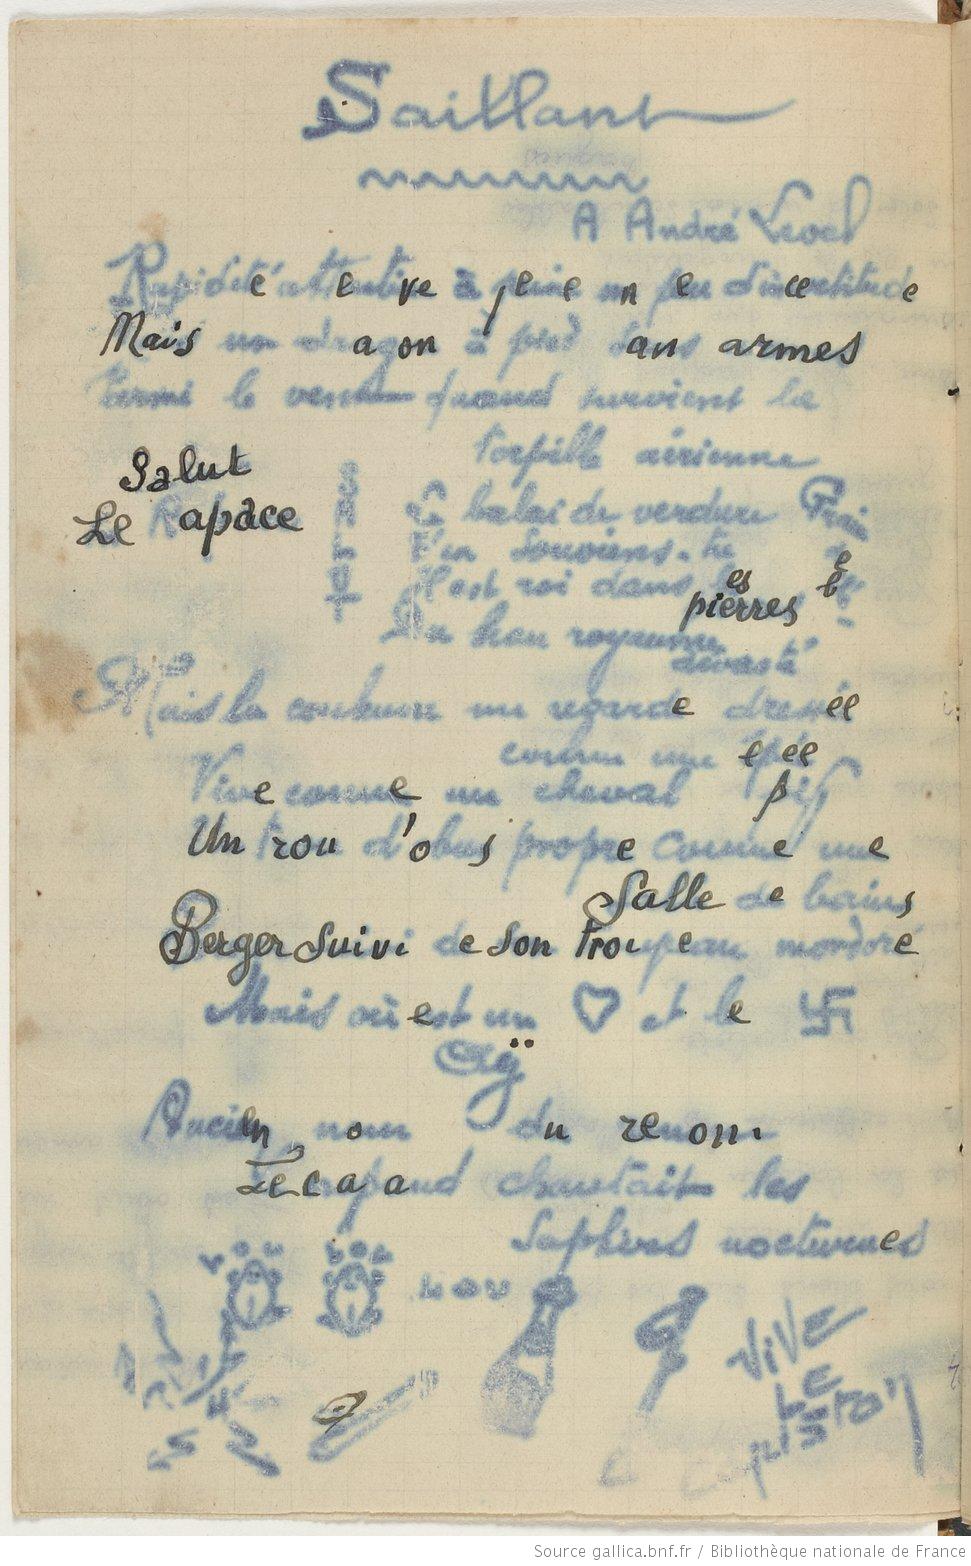 Saillant
A André Level
Rapidité attentive à peine un peu d'incertitude
Mais un dragon à pied sans armes
Parmi le vent quand survient la
torpille aérienne
Salut
Le Rapace
SALUT
Le balai de verdure
T'en souviens-tu
Il est ici dans les
pierres
Du beau royaume
dévasté
Mais la couleuvre me regarde dressée
comme une épée
Vive comme un cheval pif
Un trou d'obus propre comme une
Salle de bains
Berger suivi de son troupeau mordoré
Mais où est un et le
Aÿ
Ancien nom du renom
Le crapaud chantait les
Saphirs nocturnes
LOU
VIVE
LE
Source gallica.bnf.fr / Bibliothèque nationale de France